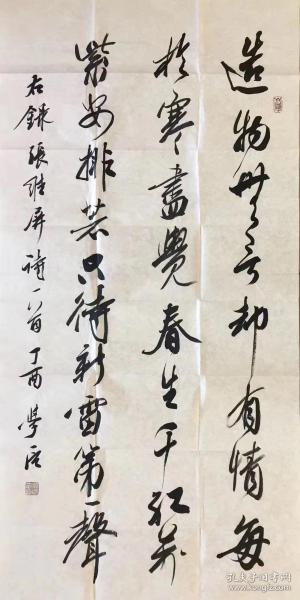 造物無言却有情每
於寒盡覺春生千紅萬
紫安排若只待新雷第一聲
右録張維屏詩一首丁酉學店
孔夫子旧书网